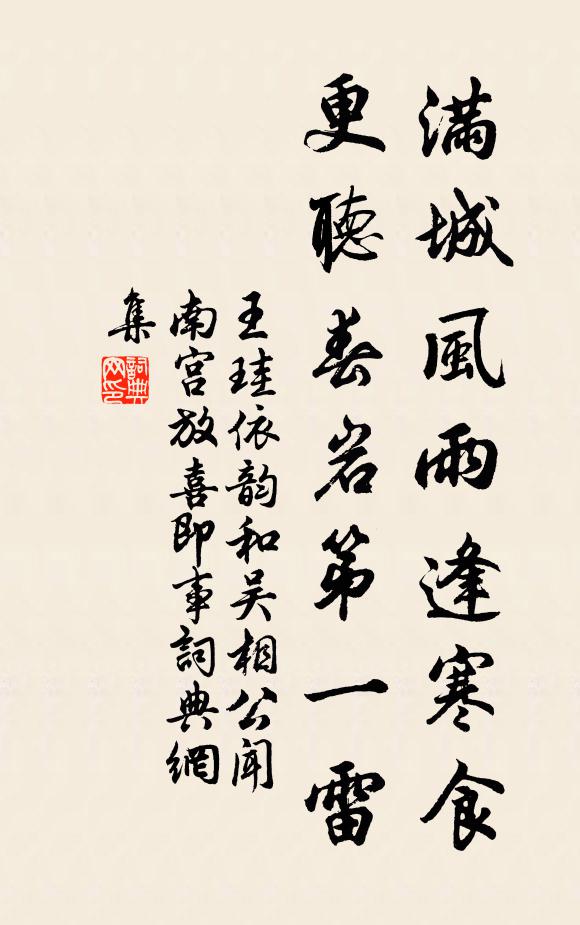 滿城風雨逢寒食
更聽春岩第一雷
王珪依韵和吴相公闻
南宫放喜即事詞典網
集
詞典
网印